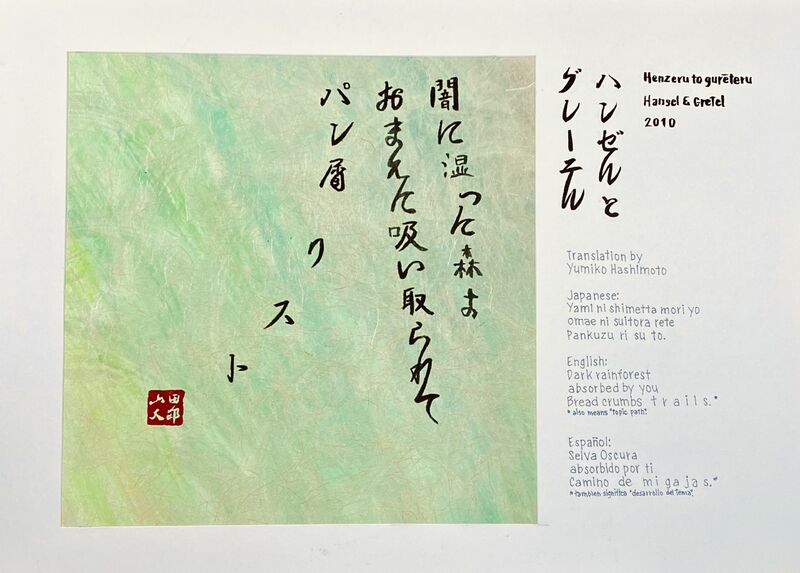 闇に湿った森よ
おまえに吸い取られて
パン屑
リ
ス
ト
ハンゼルと
グレーテル
Henzeru to gurēteru
Hansel & Gretel
2010
Translation by
Yumiko Hashimoto
Japanese:
Yami ni shimetta mori yo
omae ni suitora rete
Pankuzu ri su to.
English:
Dark rainforest
absorbed by you
Bread crumbs t r a i l s.*
* also means "topic path".
Español:
Selva Oscura
absorbido por ti
Camino de m i g a j a s.*
* tambien significa "desarrollo del tema".